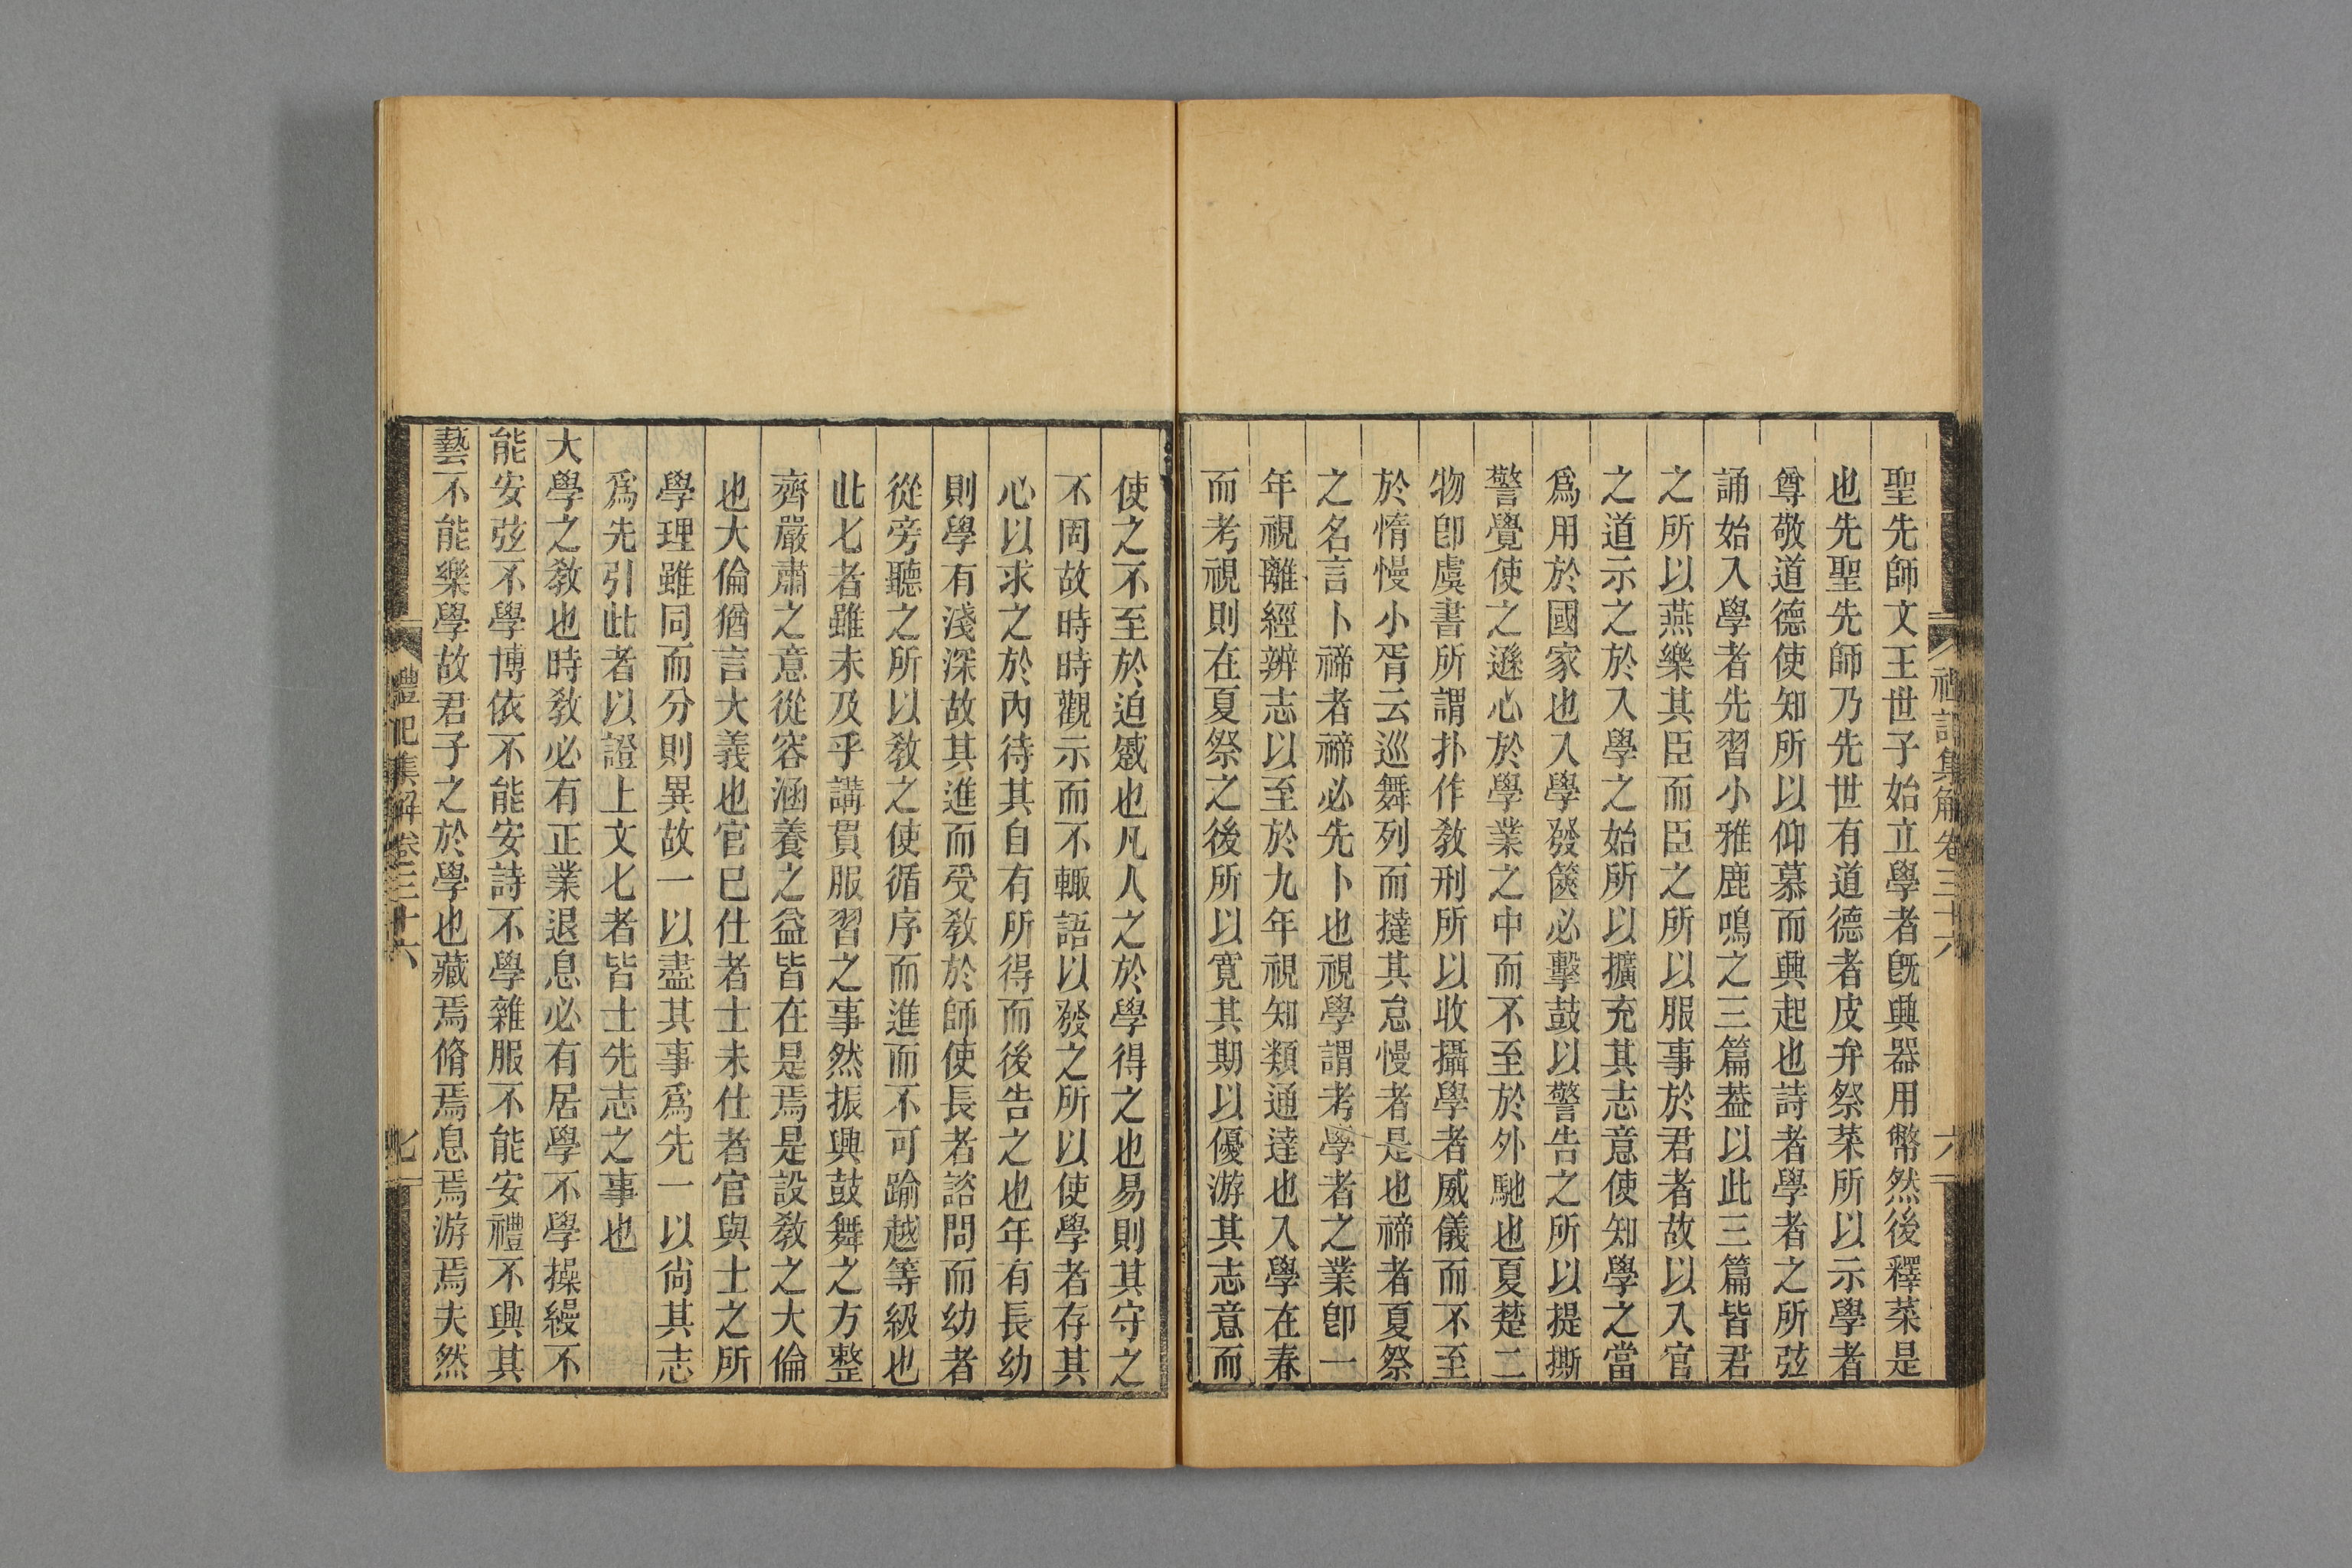 聖先師文王世子始立學者旣興器用幣然後釋菜是
也先聖先師乃先世有道德者皮弁祭菜所以示學者
尊敬道德使知所以仰慕而興起也詩者學者之所弦
誦始入學者先習小雅鹿鳴之三篇葢以此三篇皆君
之所以燕樂其臣而臣之所以服事於君者故以入官
之道示之於入學之始所以擴充其志意使知學之當
爲用於國家也入學發篋必擊鼓以警告之所以提撕
警覺使之遜心於學業之中而不至於外馳也夏楚二
物卽虞書所謂扑作敎刑所以收攝學者威儀而不至
於惰慢小胥云巡舞列而撻其怠慢者是也禘者夏祭
之名言卜禘者禘必先卜也視學謂考學者之業卽一
年視離經辨志以至於九年視知類通達也入學在春
而考視則在夏祭之後所以寬其期以優游其志意而
禮記集解卷三十六
六
使之不至於迫蹙也凡人之於學得之也易則其守之
不固故時時觀示而不輙語以發之所以使學者存其
心以求之於內待其自有所得而後告之也年有長幼
則學有淺深故其進而受敎於師使長者諮問而幼者
從旁聽之所以敎之使循序而進而不可踰越等級也
此七者雖未及乎講貫服習之事然振興鼓舞之方整
齊嚴肅之意從容涵養之益皆在是焉是設敎之大倫
也大倫猶言大義也官已仕者士未仕者官與士之所
學理雖同而分則異故一以盡其事爲先一以尙其志
爲先引此者以證上文七者皆士先志之事也
大學之敎也時敎必有正業退息必有居學不學操縵不
能安弦不學博依不能安詩不學雜服不能安禮不興其
藝不能樂學故君子之於學也藏焉脩焉息焉游焉夫然
禮記集解卷三十六
七